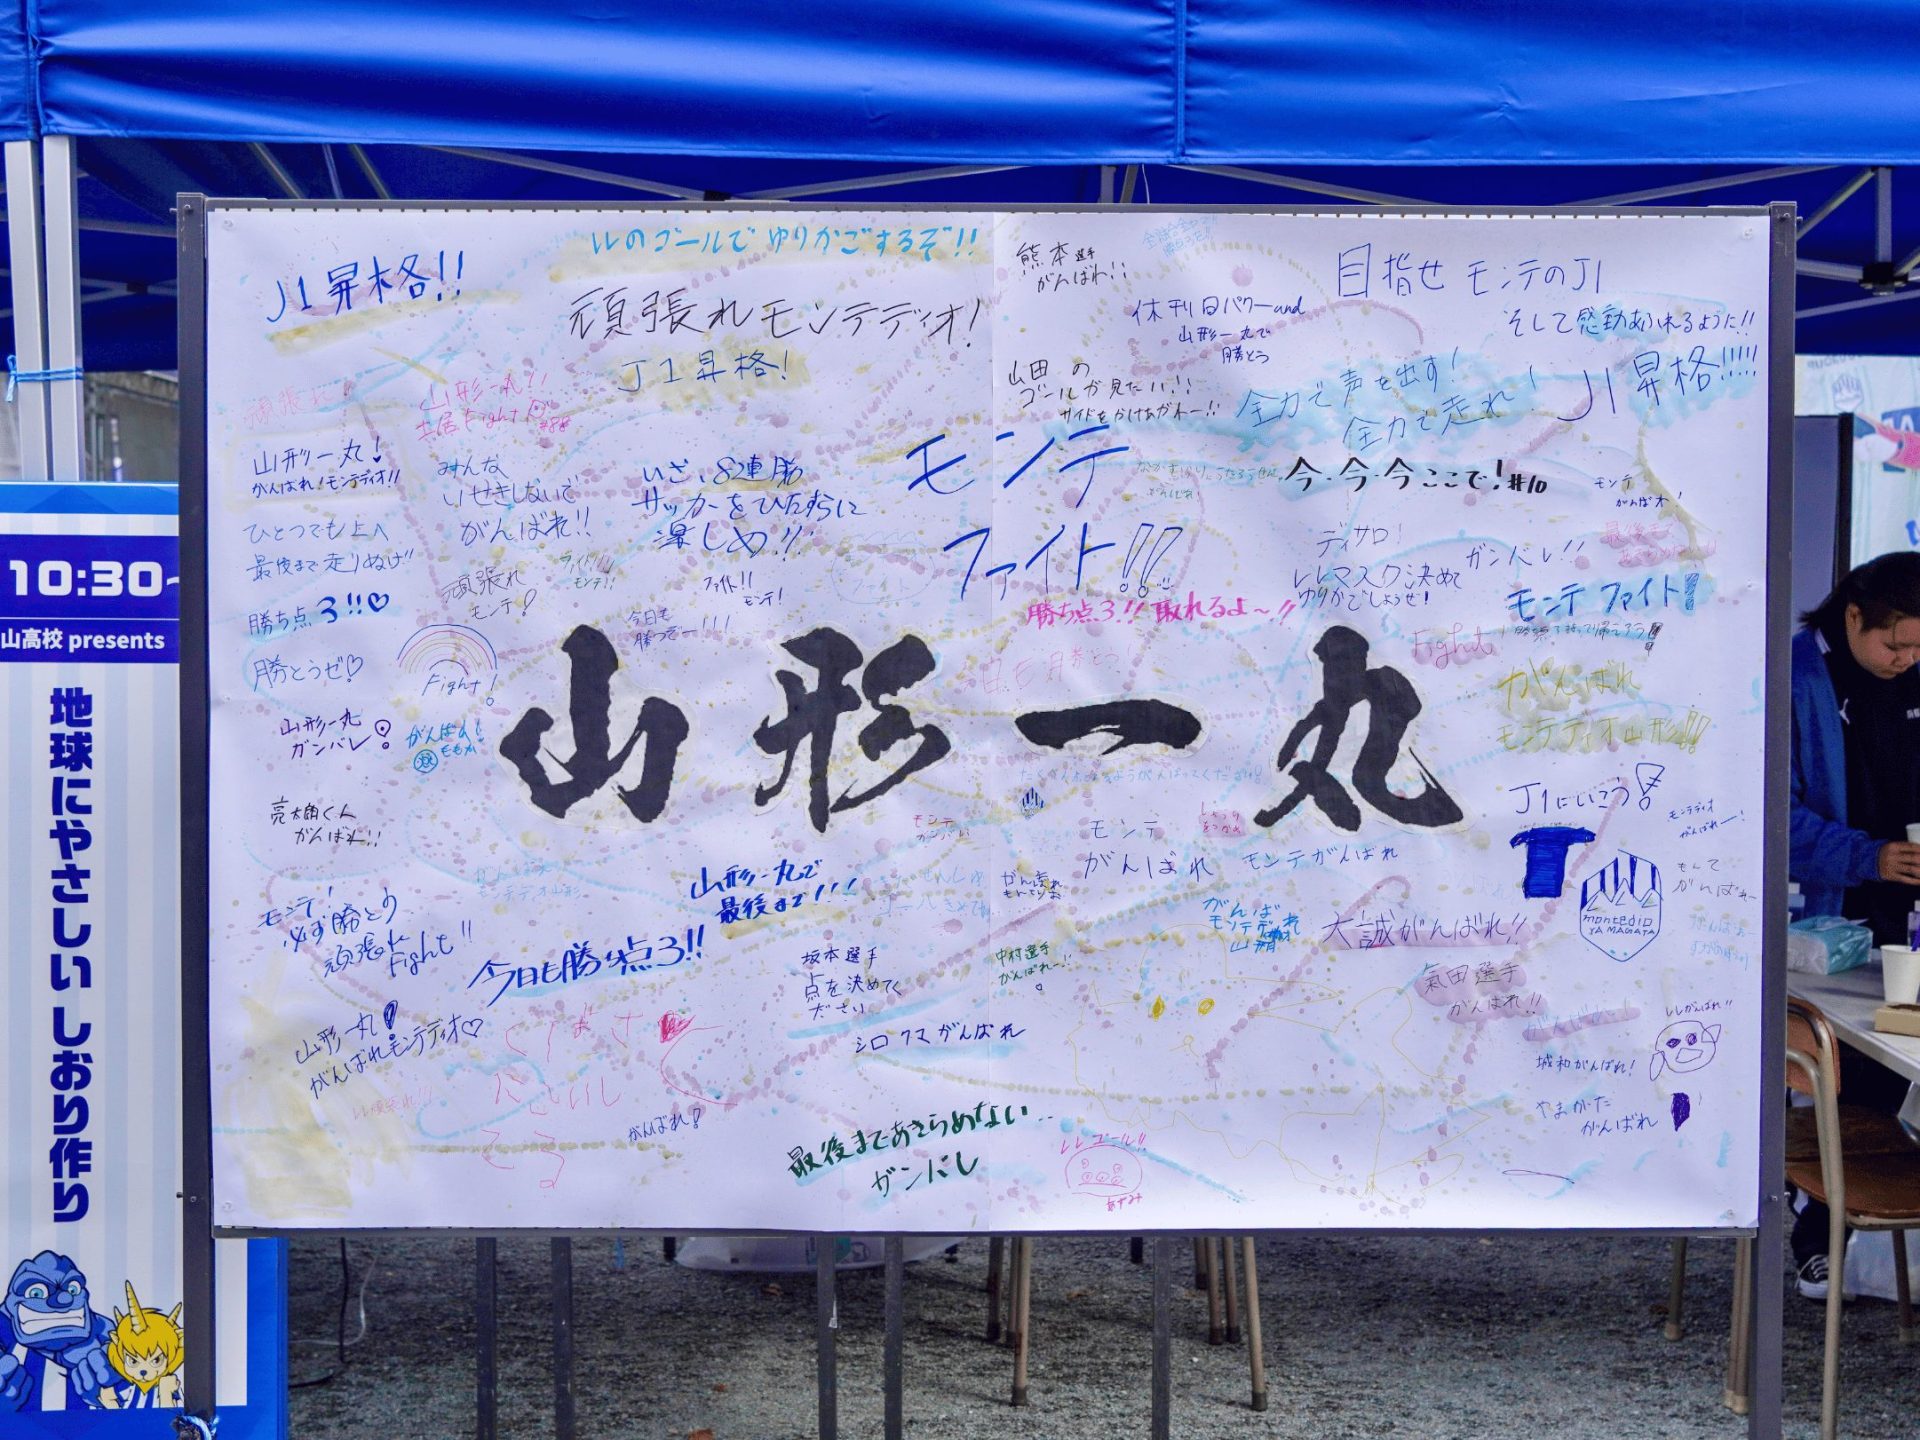 J1昇格!!
レレのゴールでゆりかごするぞ!!
頑張れモンテディオ!
J1昇格!
熊本選手
がんばれ!!
休刊日パワーand
山形一丸で
勝とう
目指せ モンテのJ1
そして感動あふれるように!!
J1昇格!!!!!
山田の
ゴールが見たい!!
サイドをかけあがれー!!
全力で声を出す!
全力で走れ!
頑張れ
山形一丸!!
土居Fight
#88
山形一丸!
がんばれ!モンテディオ!!
みんな
いせきしないで
がんばれ!!
いざ、8連勝
サッカーをひたすらに
楽しめ!!
モンテ
ファイト!!
今・今・今ここで!#10
モンテ
がんばれ!
ひとつでも上へ
最後まで走りぬけ!!
頑張れ
モンテ!
ファイト!!
モンテ!
ディサロ!
レレマスク決めて
ゆりかごしようぜ!
ガンバレ!!
モンテ ファイト!
勝ち点3!!
勝ち点3!! 取れるよ~!!
今日も
勝つぞー!!!
勝とうぜ
Fight!
Fight
がんばれ
モンテディオ山形!!
山形一丸
ガンバレ!
山形一丸
亮太朗くん
がんばれ!!
モンテ
ガンバレ
モンテ
がんばれ
モンテがんばれ
J1にいこう!
モンテディオ
がんばれー!
もんて
がんばれー
montedio
YAMAGATA
モンテ!
必ず勝とう
頑張れ
Fight!!
山形一丸で
最後まで!!!
今日も勝ち点3!!
坂本選手
点を決めてく
ださい
中村選手
がんばれー!!
大誠がんばれ!!
氣田選手
がんばれ!!
山形一丸!
がんばれモンテディオ
シロクマがんばれ
がんばれ!
レレがんばれ!!
城和がんばれ!
やまがた
がんばれ
最後まであきらめない...
ガンバレ
レレゴール!!
10:30~
山高校 presents
地球にやさしい しおり作り